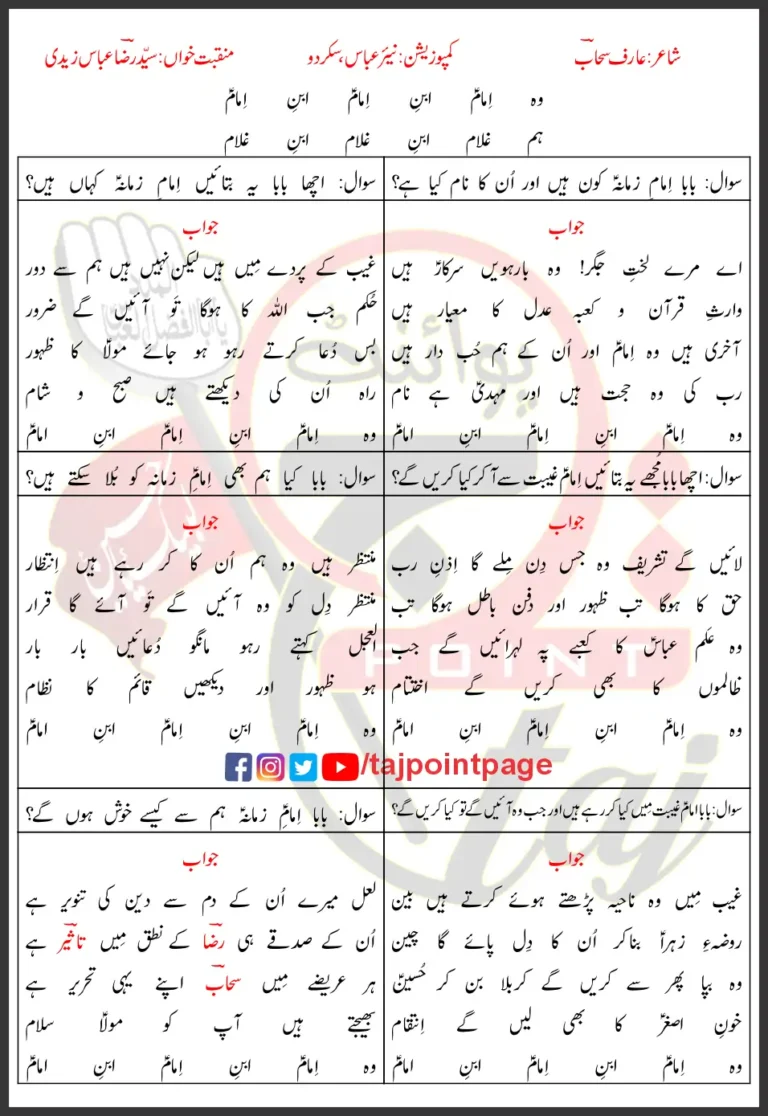 شاعر: عارف سحابؔ
کمپوزیشن: نیئر عباس، سکردو
منقبت خواں: سیّد رضاؔ عباس زیدی
وہ اِمامؑ ابنِ اِمامؑ ابنِ اِمامؑ
ہم غلام ابنِ غلام ابنِ غلام
سوال: بابا اِمامِ زمانہؑ کون ہیں اور اُن کا نام کیا ہے؟
جواب
اے مرے لختِ جگر! وہ بارہویں سرکارؑ ہیں
وارثِ قرآن و کعبہ عدل کا معیار ہیں
آخری ہیں وہ اِمامؑ اور اُن کے ہم حُب دار ہیں
رب کی وہ حجت ہیں اور مہدیؑ ہے نام
وہ اِمامؑ ابنِ اِمامؑ ابنِ امامؑ
سوال: اچھا بابا یہ بتائیں اِمامِ زمانہؑ کہاں ہیں؟
جواب
غیب کے پردے مِیں ہیں لیکن نہیں ہیں ہم سے دور
حُکم جب اللہ کا ہوگا تَو آئیں گے ضرور
بس دُعا کرتے رہو ہو جائے مولاؑ کا ظہور
راہ اُن کی دیکھتے ہیں صبح و شام
وہ اِمامؑ ابنِ اِمامؑ ابنِ امامؑ
سوال: اچھا بابا مُجھے یہ بتائیں اِمامؑ غیبت سے آ کر کیا کریں گے؟
جواب
لائیں گے تشریف وہ جس دِن مِلے گا اِذنِ رب
حق کا ہوگا تب ظہور اور دَفن باطل ہوگا تب
وہ عَلم عباسؑ کا کعبے پہ لہرائیں گے جب
ظالموں کا بھی کریں گے اختتام
وہ اِمامؑ ابنِ اِمامؑ ابنِ امامؑ
سوال: بابا کیا ہم بھی اِمامِؑ زمانہ کو بُلا سکتے ہیں؟
جواب
منتظر ہیں وہ ہم اُن کا کر رہے ہیں اِنتظار
منتظر دِل کو وہ آئیں گے تَو آئے گا قرار
العجل کہتے رہو مانگو دُعائیں بار بار
ہو ظہور اور دیکھیں قائم کا نظام
وہ اِمامؑ ابنِ اِمامؑ ابنِ امامؑ
/tajpointpage
سوال: بابا امامؑ غیبت میں کیا کر رہے ہیں اور جب وہ آئیں گے تو کیا کریں گے؟
جواب
غیب مِیں وہ ناحیہ پڑھتے ہوئے کرتے ہیں بین
روضہءِ زہراؑ بنا کر اُن کا دِل پائے گا چین
وہ بپا پھر سے کریں گے کربلا بن کر حُسینؑ
خونِ اصغرؑ کا بھی لیں گے اِنتقام
وہ اِمامؑ ابنِ اِمامؑ ابنِ امامؑ
سوال: بابا اِمامِؑ زمانہؑ ہم سے کیسے خوش ہوں گے؟
جواب
لعل میرے اُن کے دم سے دین کی تنویر ہے
اُن کے صدقے ہی رضاؔ کے نطق مِیں تاثیرؔ ہے
ہر عریضے مِیں سحابؔ اپنے یہی تحریر ہے
بھیجتے ہیں آپ کو مولاؑ سلام
وہ اِمامؑ ابنِ اِمامؑ ابنِ امامؑ
پوائنٹ
POINT
taj